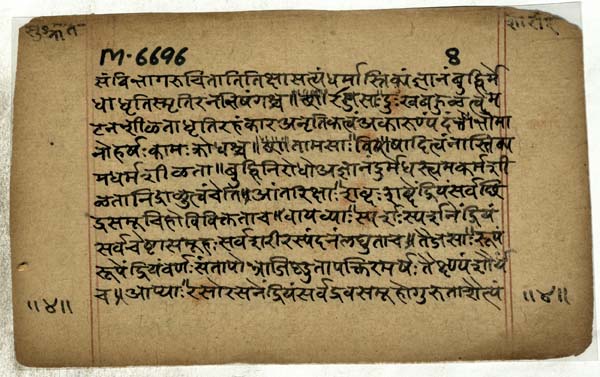 सुश्रुत
शारीर
M-6696
8
संविभागरुचितातितिक्षासत्यंधर्मास्तिक्यंज्ञानंबुद्धिर्मे
धाधृतिस्मृतिरनभिषंगश्च॥ राजसाःदुःखबहुत्वम
टनशीलताधृतिरहंकारअनृतिकत्वअकारुण्यंदंभो
मानोहर्षःकामःक्रोधश्च॥ तामसाःविषादित्वंनास्तिक्य
मधर्मशीलता॥बुद्धिनिरोधोअज्ञानंदुर्मेधस्त्वमकर्मशी
लतानिद्रालुत्वंचेति॥आंतरिक्षाःशब्दःशब्देंद्रियंसर्वछि
द्रसमूहोविविक्तताच॥वायव्याःस्पर्शःस्पर्शनेंद्रियं
सर्वचेष्टासमूहःसर्वशरीरस्पंदनंलघुताच॥तैजसाःरूपं
रूपेंद्रियंवर्णःसंतापोभ्राजिष्णुतापक्तिरमर्षःतैक्ष्ण्यंशौर्यं
च॥आप्याःरसोरसनेंद्रियंसर्वद्रवसमूहोगुरुताशैत्यं
॥४॥
॥४॥